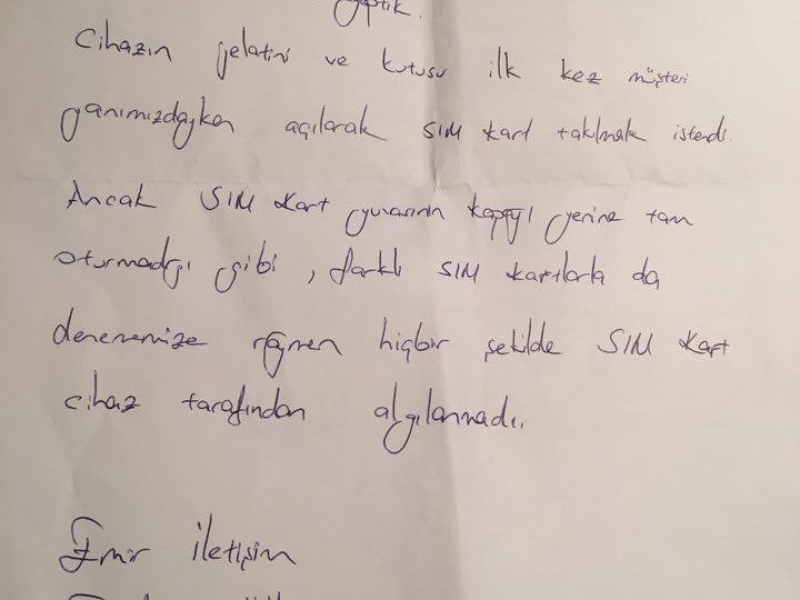 yaptık.
Cihazın jelatini ve kutusu ilk kez müşteri
yanımızdayken açılarak SIM kart takılmak istendi.
Ancak SIM kart yuvasının kapağı yerine tam
oturmadığı gibi, farklı SIM kartlarla da
denememize rağmen hiçbir şekilde SIM kart
cihaz tarafından algılanmadı.
Emir iletişim